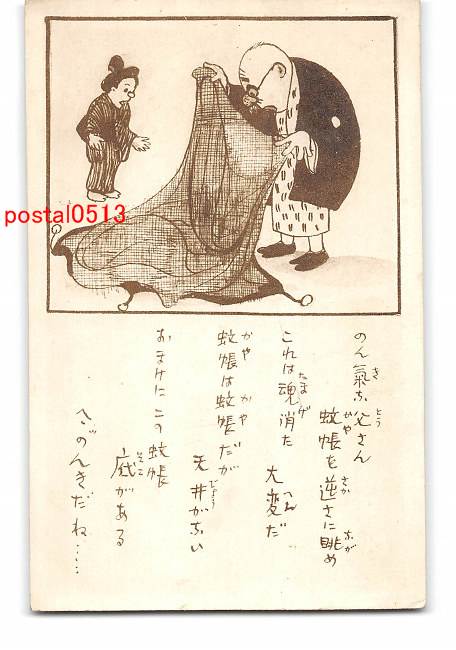 postal0513
のん氣な父さん
蚊帳を逆さに眺め
これは魂消た
大変だ
蚊帳は蚊帳だが
天井がない
おまけにこの蚊帳
底がある
へゞのんきだね……